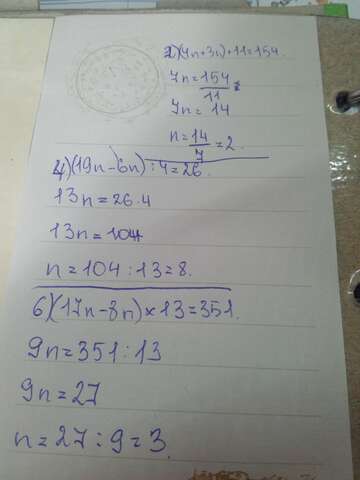 2)(4n+3n)+11=154.
7n=154
11
7n=14
n=14/7=2.
4)(19n-6n):4=26.
13n=26.4
13n=104
n=104:13=8.
6)(17n-8n)×13=351.
9n=351:13
9n=27
n=27:9=3.